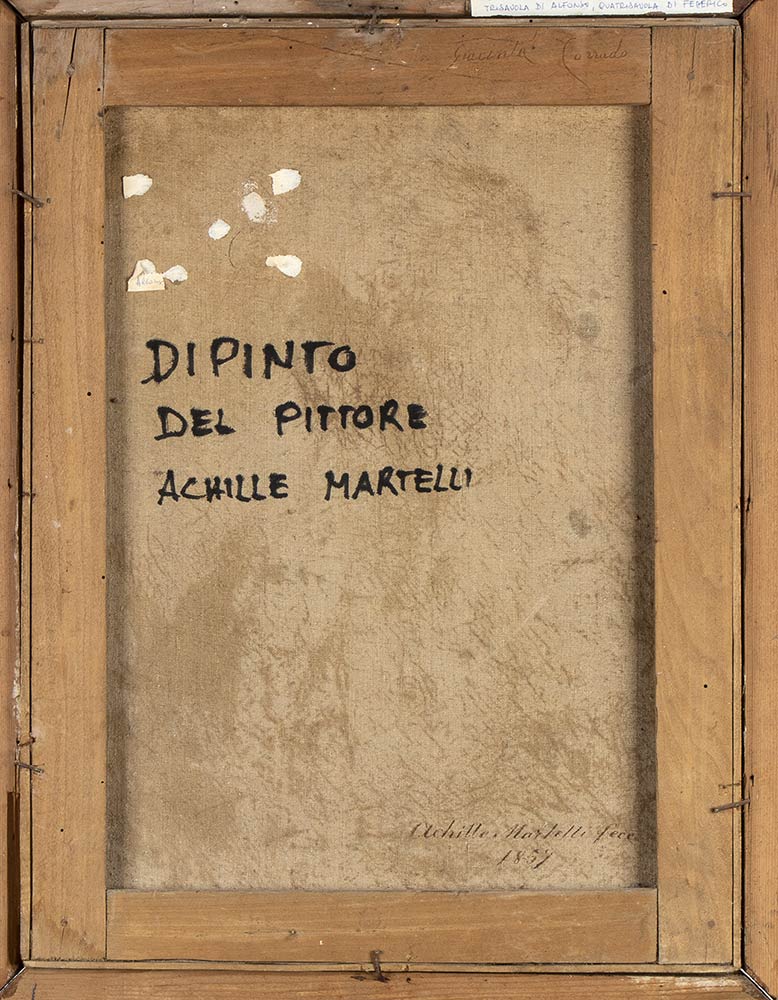 TRISAVOLA DI ALFONSO, QUATRISAVOLA DI FEDERICO
Corrado
DIPINTO
DEL PITTORE
ACHILLE MARTELLI
Achille Martelli fece
1857